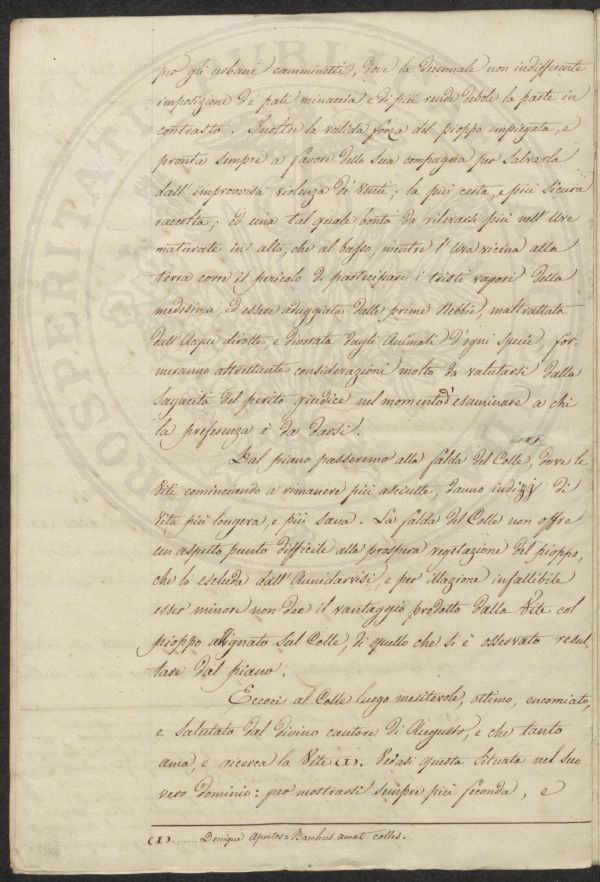 per gli urbani camminetti, dove la decennale non indifferente
imposizione de' pali minaccia e di più rende debole la parte in
contrasto. Inoltre la valida forza del pioppo impiegata, e
pronta sempre a favore della sua compagna per salvarla
dall'improvvisa violenza de' venti; la più certa, e più sicura
raccolta; ed una tal quale bontà da rilevarsi più nell'Uve
maturate in alto, che al basso, mentre l'Uva vicina alla
terra corre il pericolo di partecipare i tristi vapori della
medesima, ed essere aduggiata dalle prime Nebbie, maltrattata
dall'Acque dirotte, e divorata dagli Animali d'ogni specie, for-
meranno altrettante considerazioni molto da valutarsi dalla
sagacità del perito giudice nel momento d'esaminare a chi
la preferenza è da darsi.
Dal piano passeremo alla falda del Colle, dove le
Viti cominciando a rimanere più asciutte, danno indizj di
Vita più longeva, e più sana. La falda del Colle non offre
un aspetto punto difficile alla prospera vegetazione del pioppo,
che lo escluda dall'Annidarvisi, e per illazione infallibile
esser minore non dee il vantaggio prodotto dalla Vite col
pioppo allignato sul Colle, di quello che si è osservato resul-
tare dal piano.
Eccoci al Colle luogo meritevole, ottimo, encomiato,
e salutato dal divino cantore di Augusto, e che tanto
ama, e ricerca la Vite (1). Vedasi questa situata nel suo
vero dominio: per mostrarsi sempre più feconda, e
(1)....... Denique Apertos = Bacchus amat colles.
PROSPERITATI